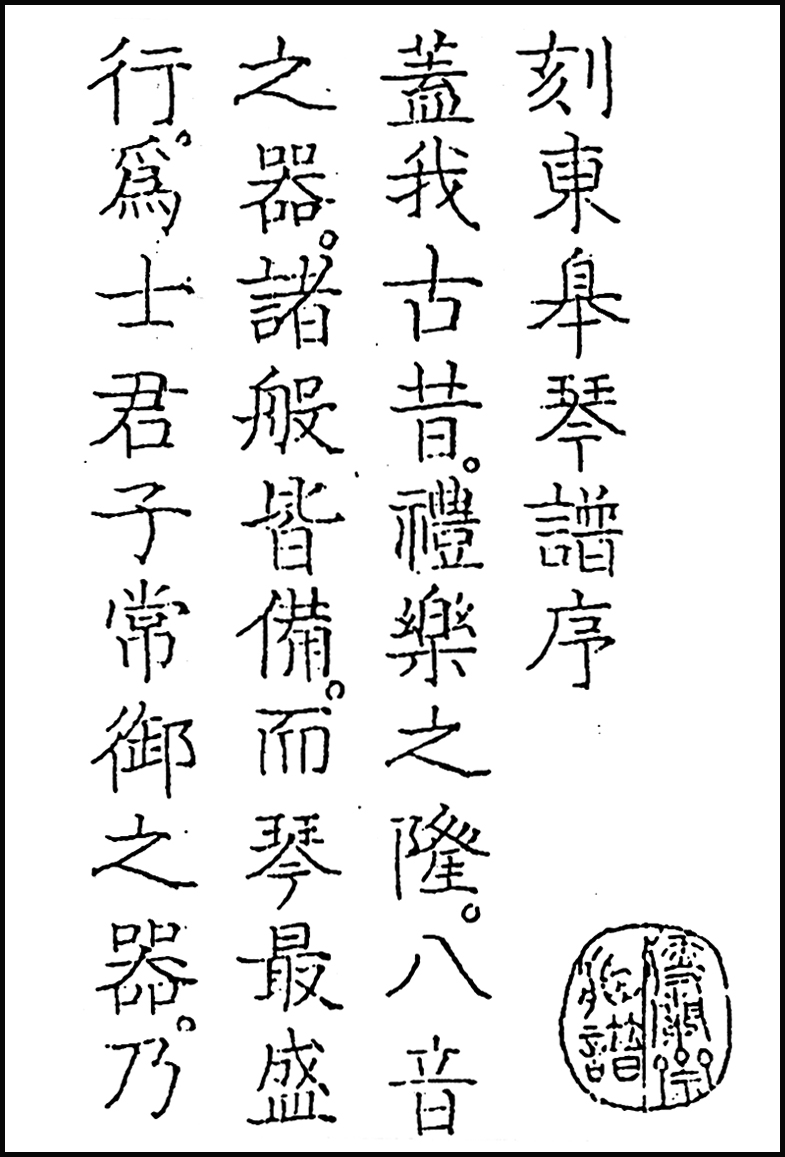 刻東皋琴譜序
蓋我古昔。禮樂之隆。八音
之器。諸般皆備。而琴最盛
行。爲士君子常御之器。乃